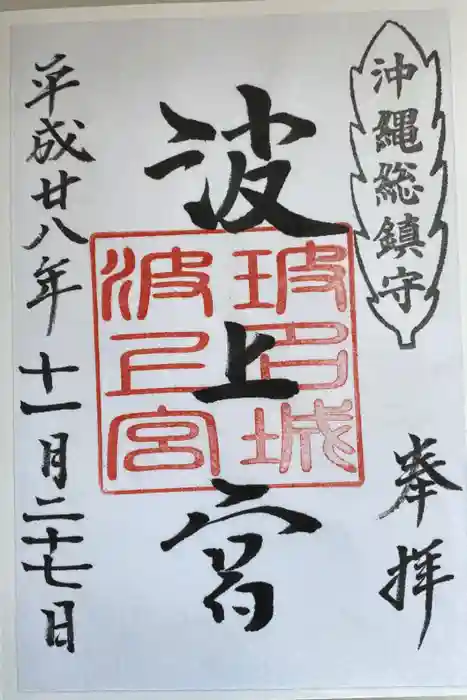 沖縄総鎮守
奉拝
波上宮
玻名城
波上宮
平成廿八年十一月二十七日